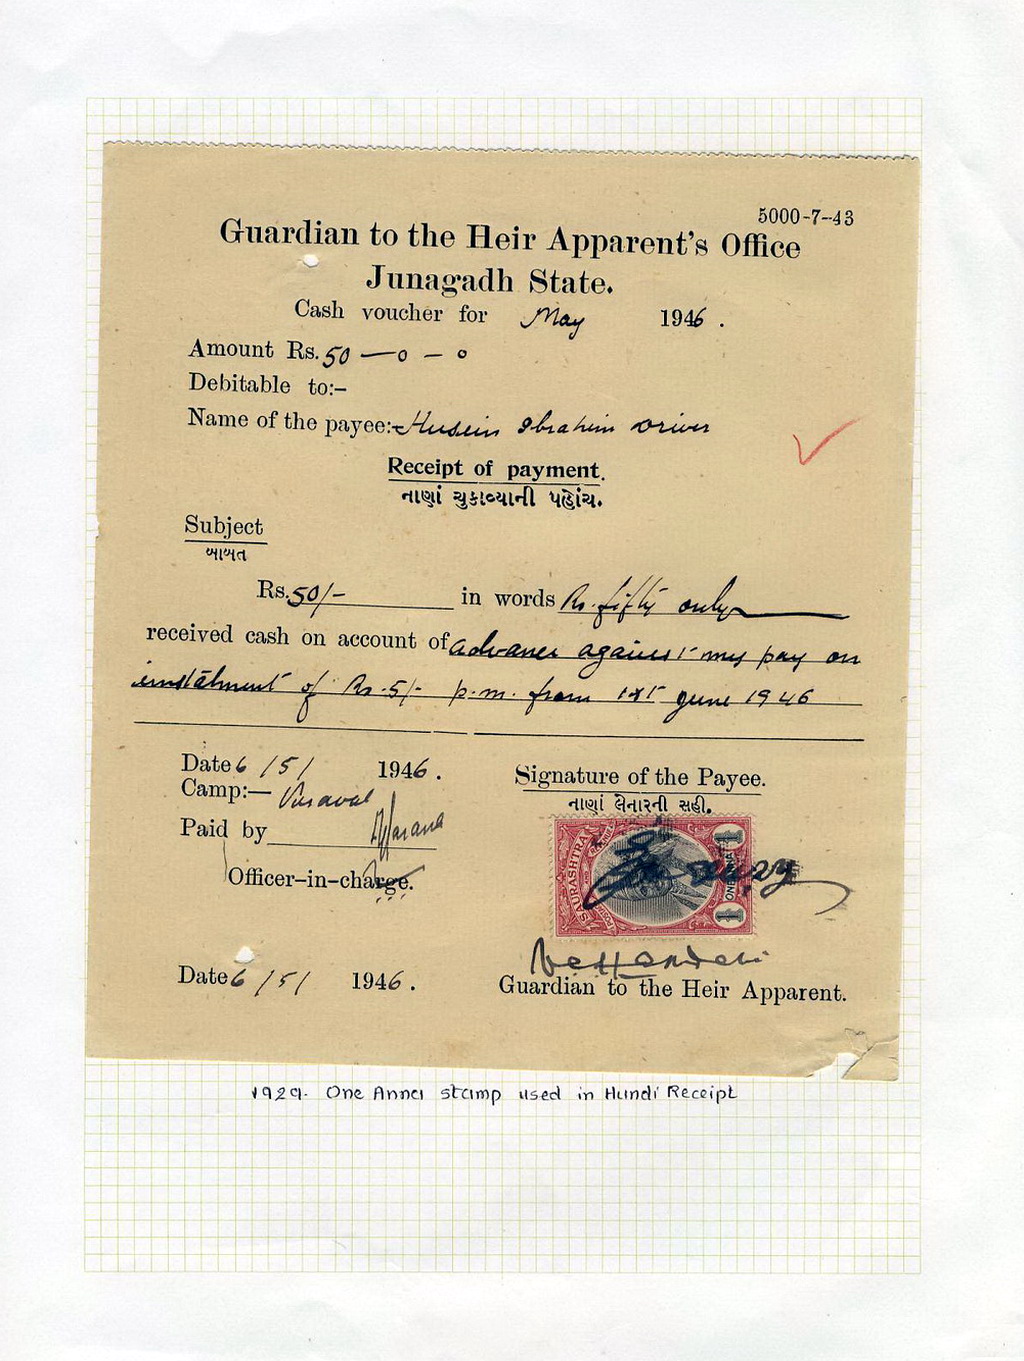 5000-7-43
Guardian to the Heir Apparent's Office
Junagadh State.
Cash voucher for May 1946.
Amount Rs. 50 — 0 — 0
Debitable to:-
Name of the payee:- Husein Ibrahim Driver
Receipt of payment.
નાણાં ચુકાવ્યાની પહોંચ.
Subject
બાબત
Rs. 50/- in words Rs. fifty only
received cash on account of advance against my pay on
instalment of Rs. 5/- p.m. from 1st June 1946
Date 6/5/ 1946.
Camp:— Veraval
Paid by
Officer-in-charge.
Date 6/5/ 1946.
Signature of the Payee.
નાણાં લેનારની સહી.
SAURASHTRA
POSTAGE
ONE ANNA
1 1
Guardian to the Heir Apparent.
1929. One Anna stamp used in Hundi Receipt